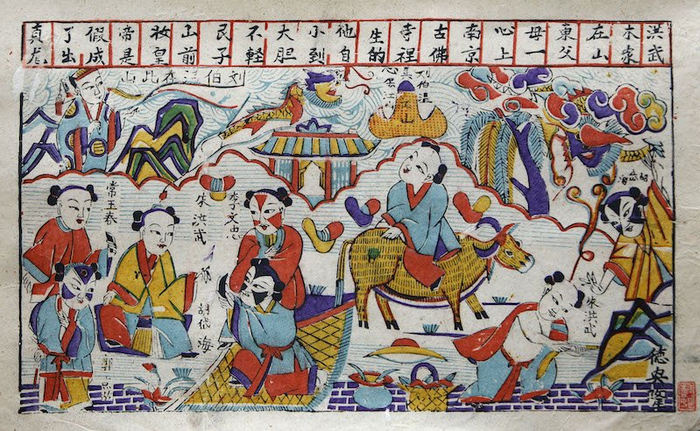 洪武
本家
在山
東父
母一
心上
南京
古佛
寺裡
生的
他自
小到
大胆
不軽
艮子
山前
妝皇
帝是
假成
了出
真龙
刘伯温在此山
刘伯温
李文忠
朱洪武
常王春
胡岱海
朱洪武
郭